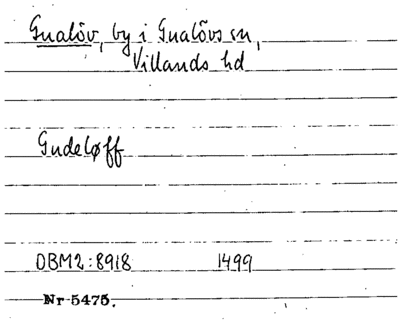 Gualöv, by i Gualövs sn,
Villands hd
Gudeløff
DBM2:8918 1499
Nr 5475.